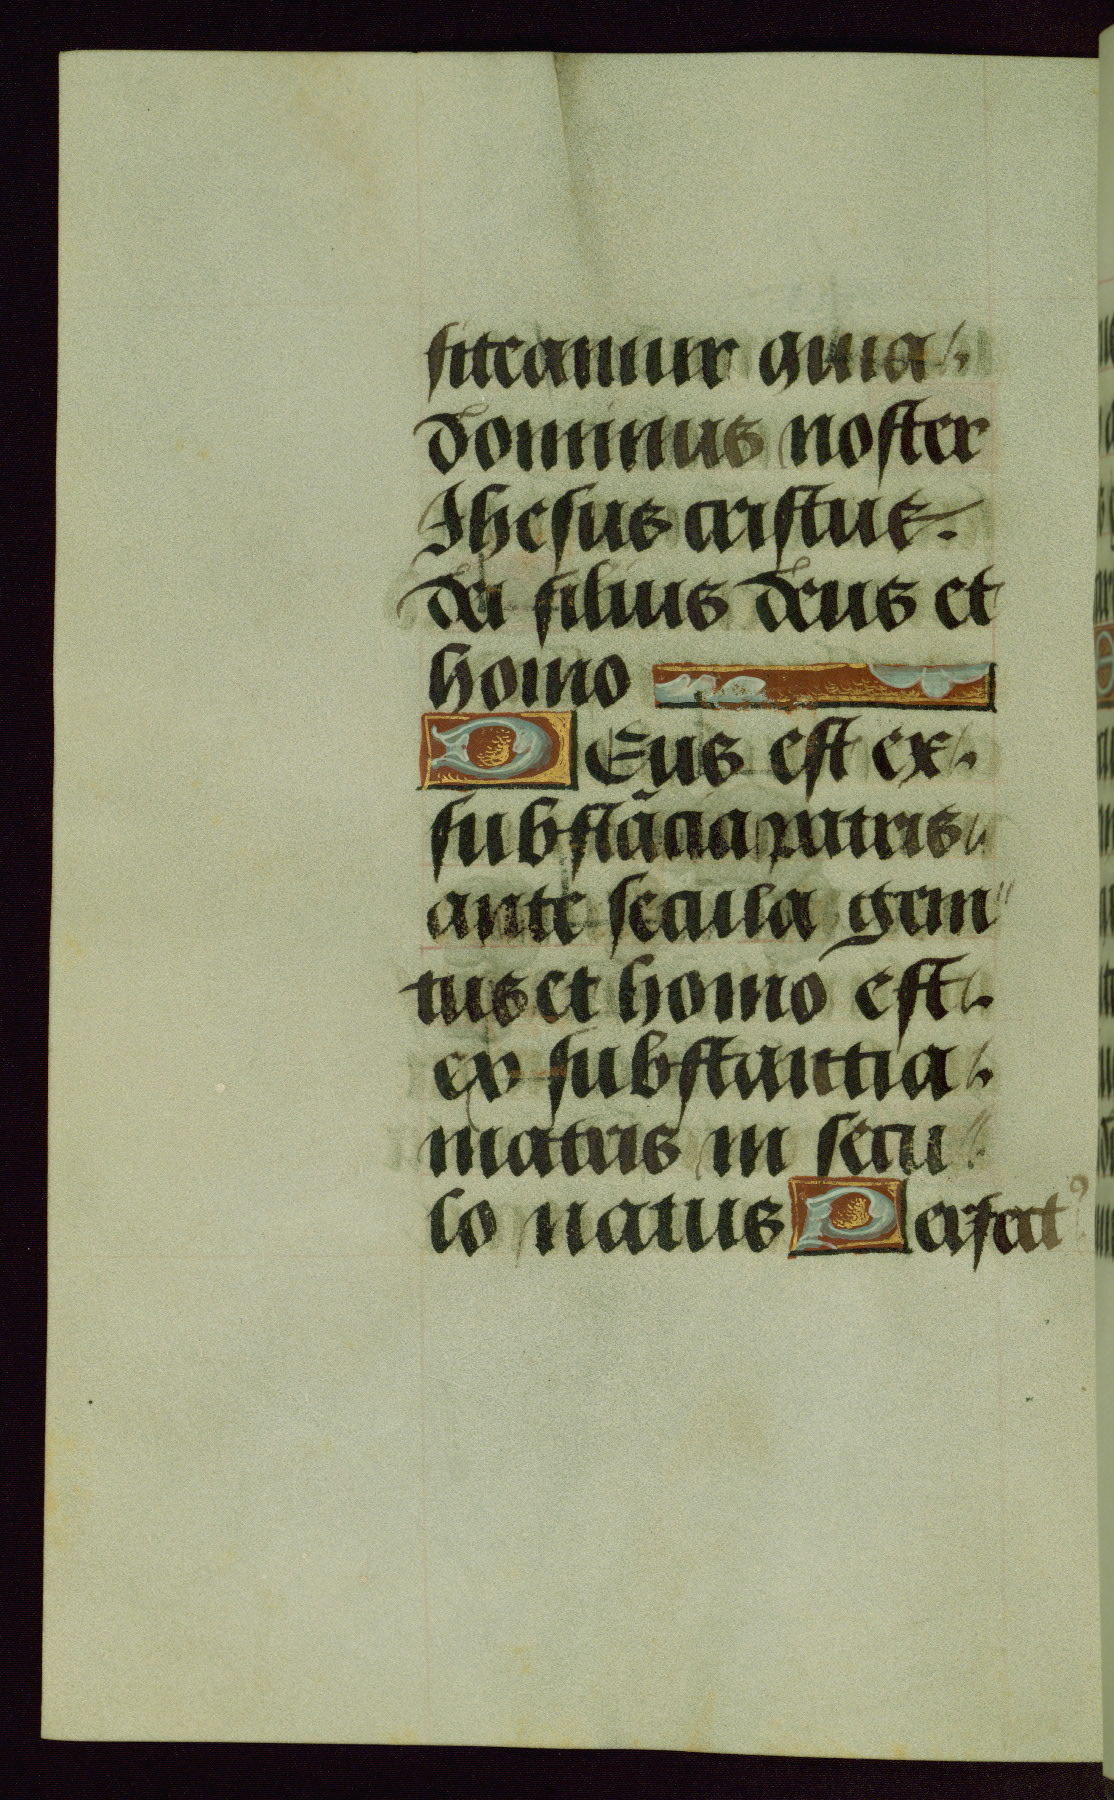 fiteamur quia
dominus noster
Ihesus cristus.
dei filius deus et
homo
Deus est ex
substãcia patris
ante secula geni
tus et homo est
ex substantia
matris in secu
lo natus Perfect⁹